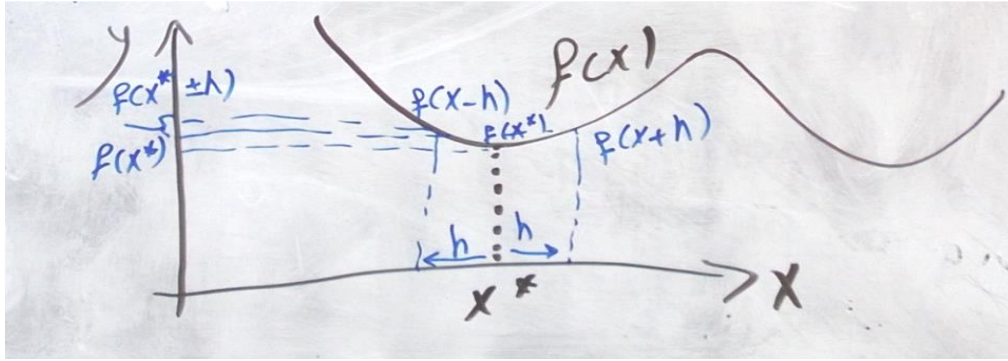 y
f(x)
f(x* ±h)
f(x-h)
f(x*)
f(x+h)
f(x*)
h h
x*
X